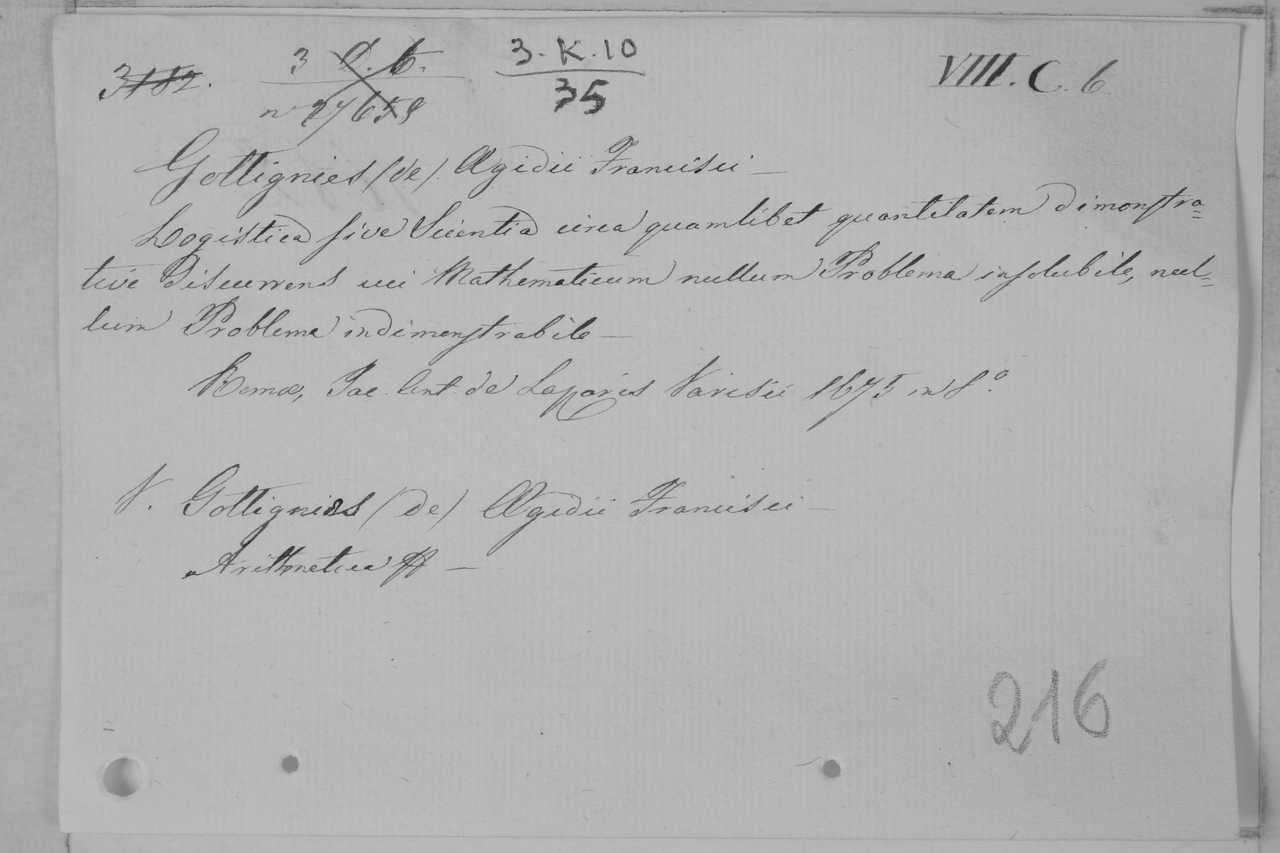 3182. 3 D. 6. 3.K.10 VIII.C.6
nº 27658 35
Gottignies (de) Ægidii Francisci —
Logistica sive Scientia circa quamlibet quantitatem dimonstra=
tive discurrens cui Mathematicum nullum Problema insolubile, nul=
lum Problema indimonstrabile —
Romæ, Jac. Ant. de Lazaris Varisii 1675 in 8.º
V. Gottignies (de) Ægidii Francisci —
Arithmetica
216